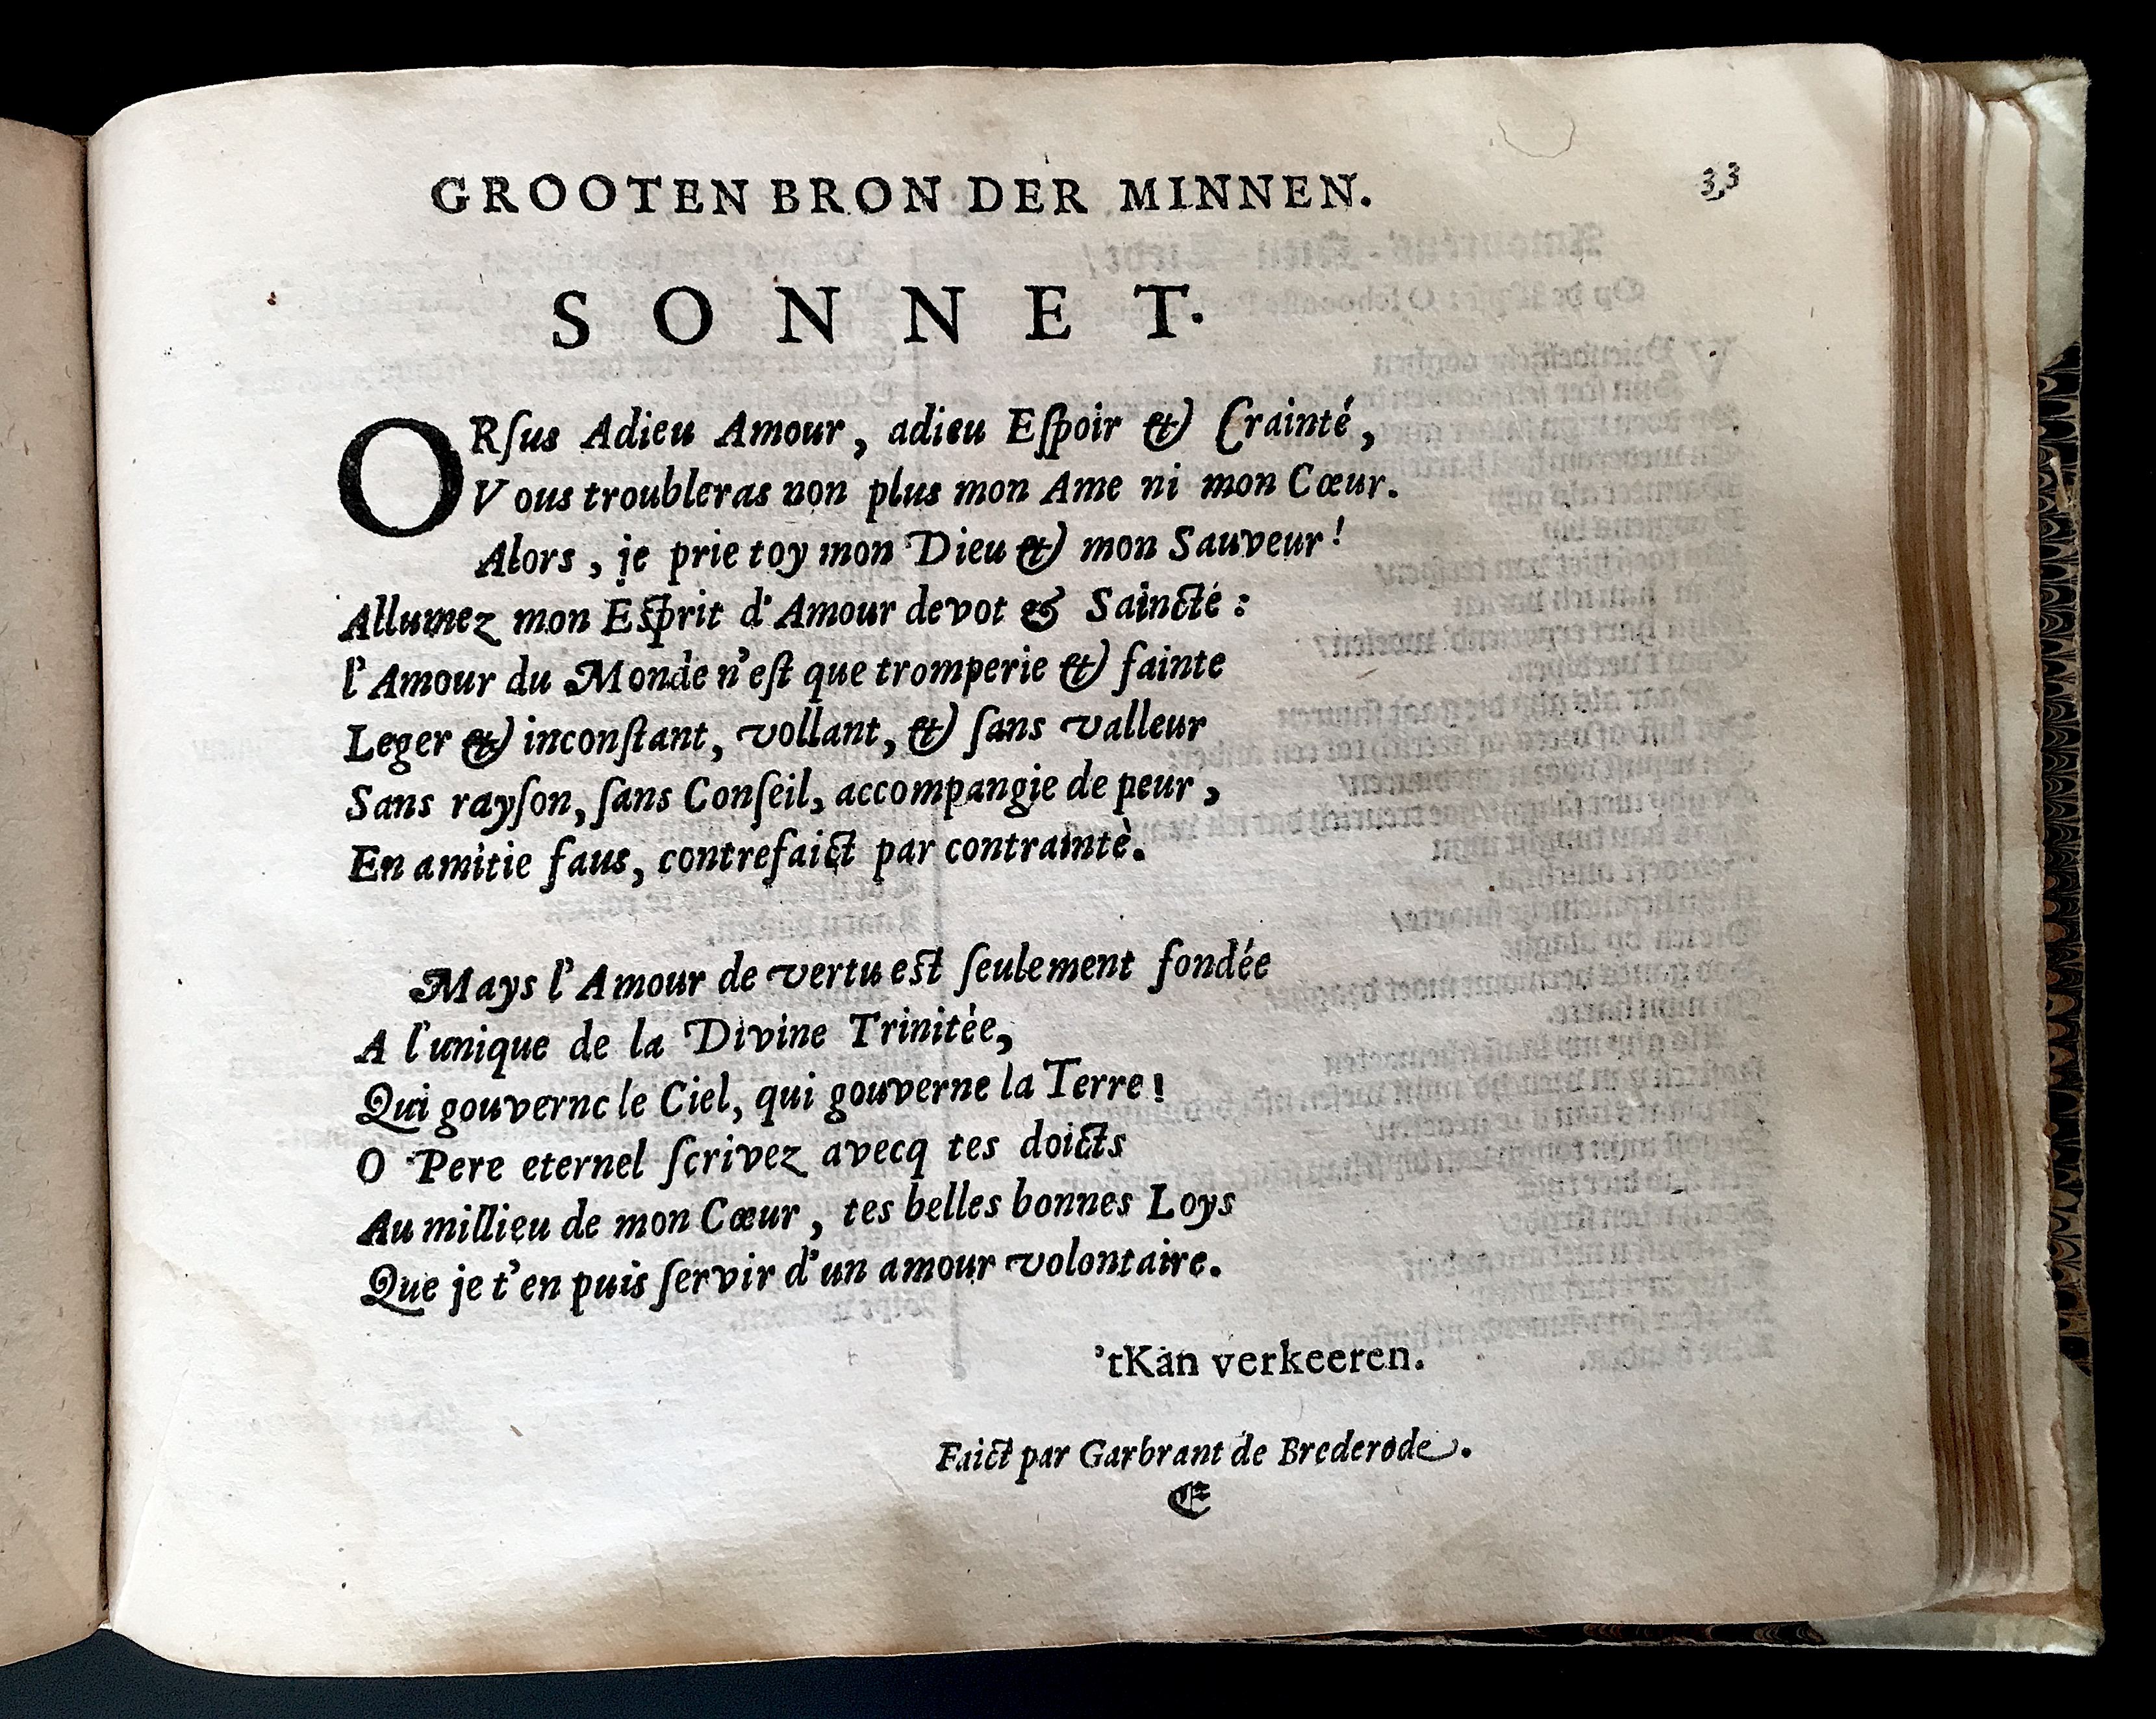 GROOTEN BRON DER MINNEN. 33
SONNET.
ORſus Adieu Amour, adieu Eſpoir & Crainté,
Vous troubleras non plus mon Ame ni mon Cœur.
Alors, je prie toy mon Dieu & mon Sauveur!
Allumez mon Esprit d'Amour devot & Saincté:
l'Amour du Monde n'eſt que tromperie & fainte
Leger & inconſtant, vollant, & ſans valleur
Sans rayſon, ſans Conſeil, accompangie de peur,
En amitie faus, contrefaict par contraintè.
Mays l'Amour de vertu est ſeulement fondée
A l'unique de la Divine Trinitée,
Qui gouvernc le Ciel, qui gouverne la Terre!
O Pere eternel ſcrivez avecq tes doicts
Au millieu de mon Cœur, tes belles bonnes Loys
Que je t'en puis ſervir d'un amour volontaire.
'tKan verkeeren.
Faict par Garbrant de Brederode.
E